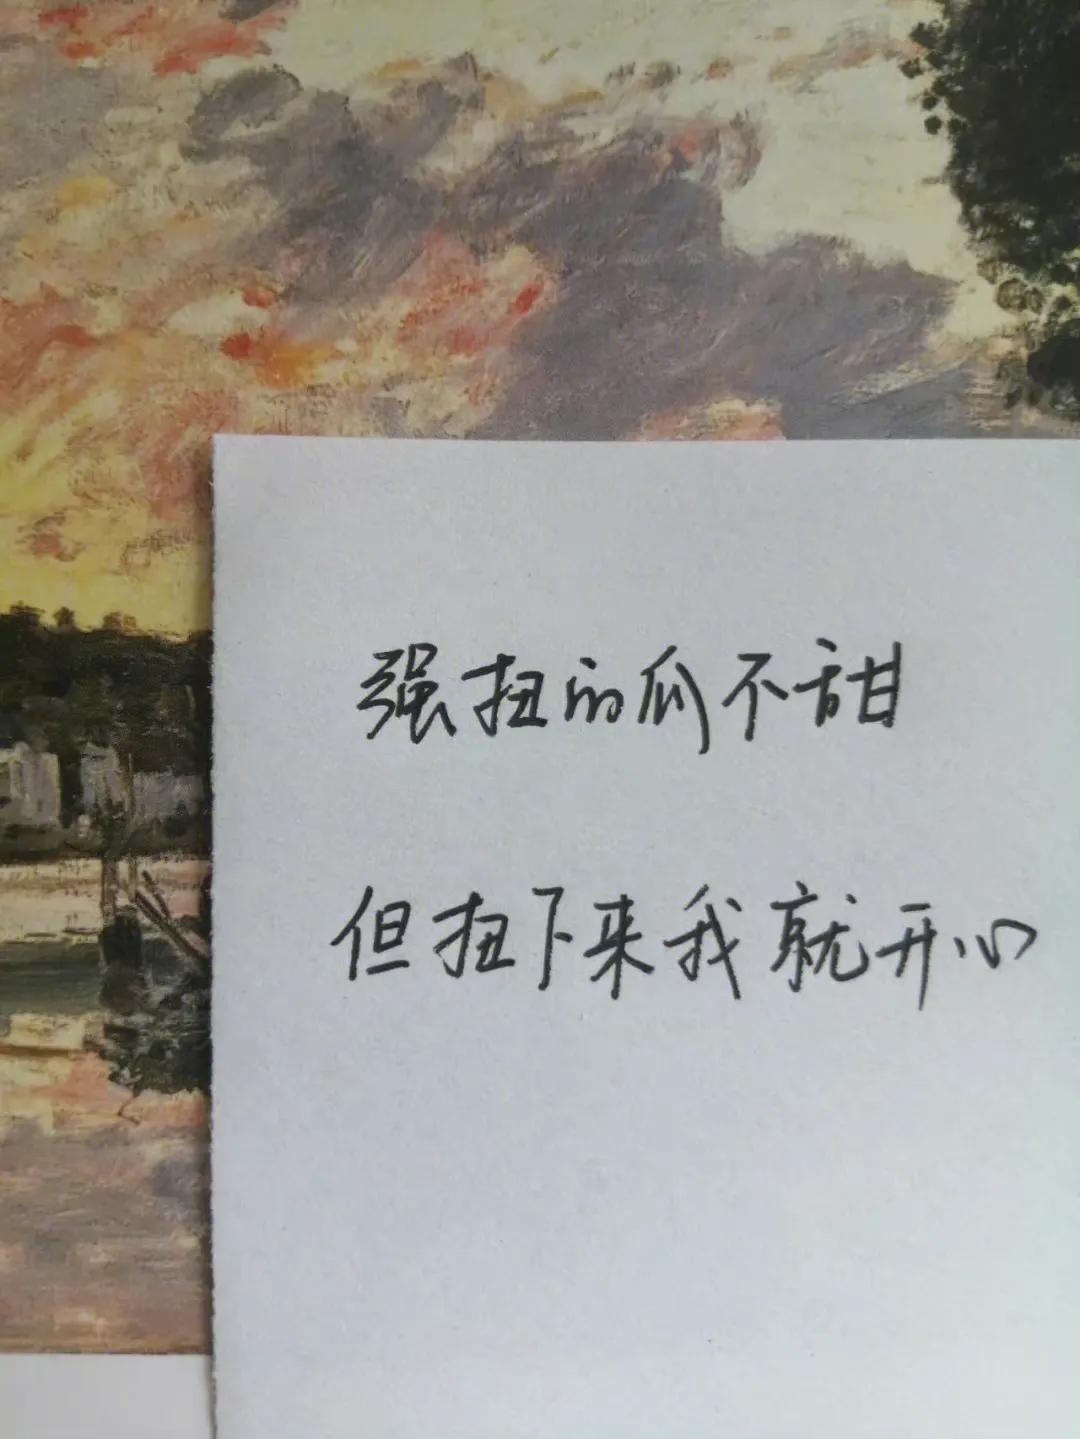 强扭的瓜不甜
但扭下来我就开心